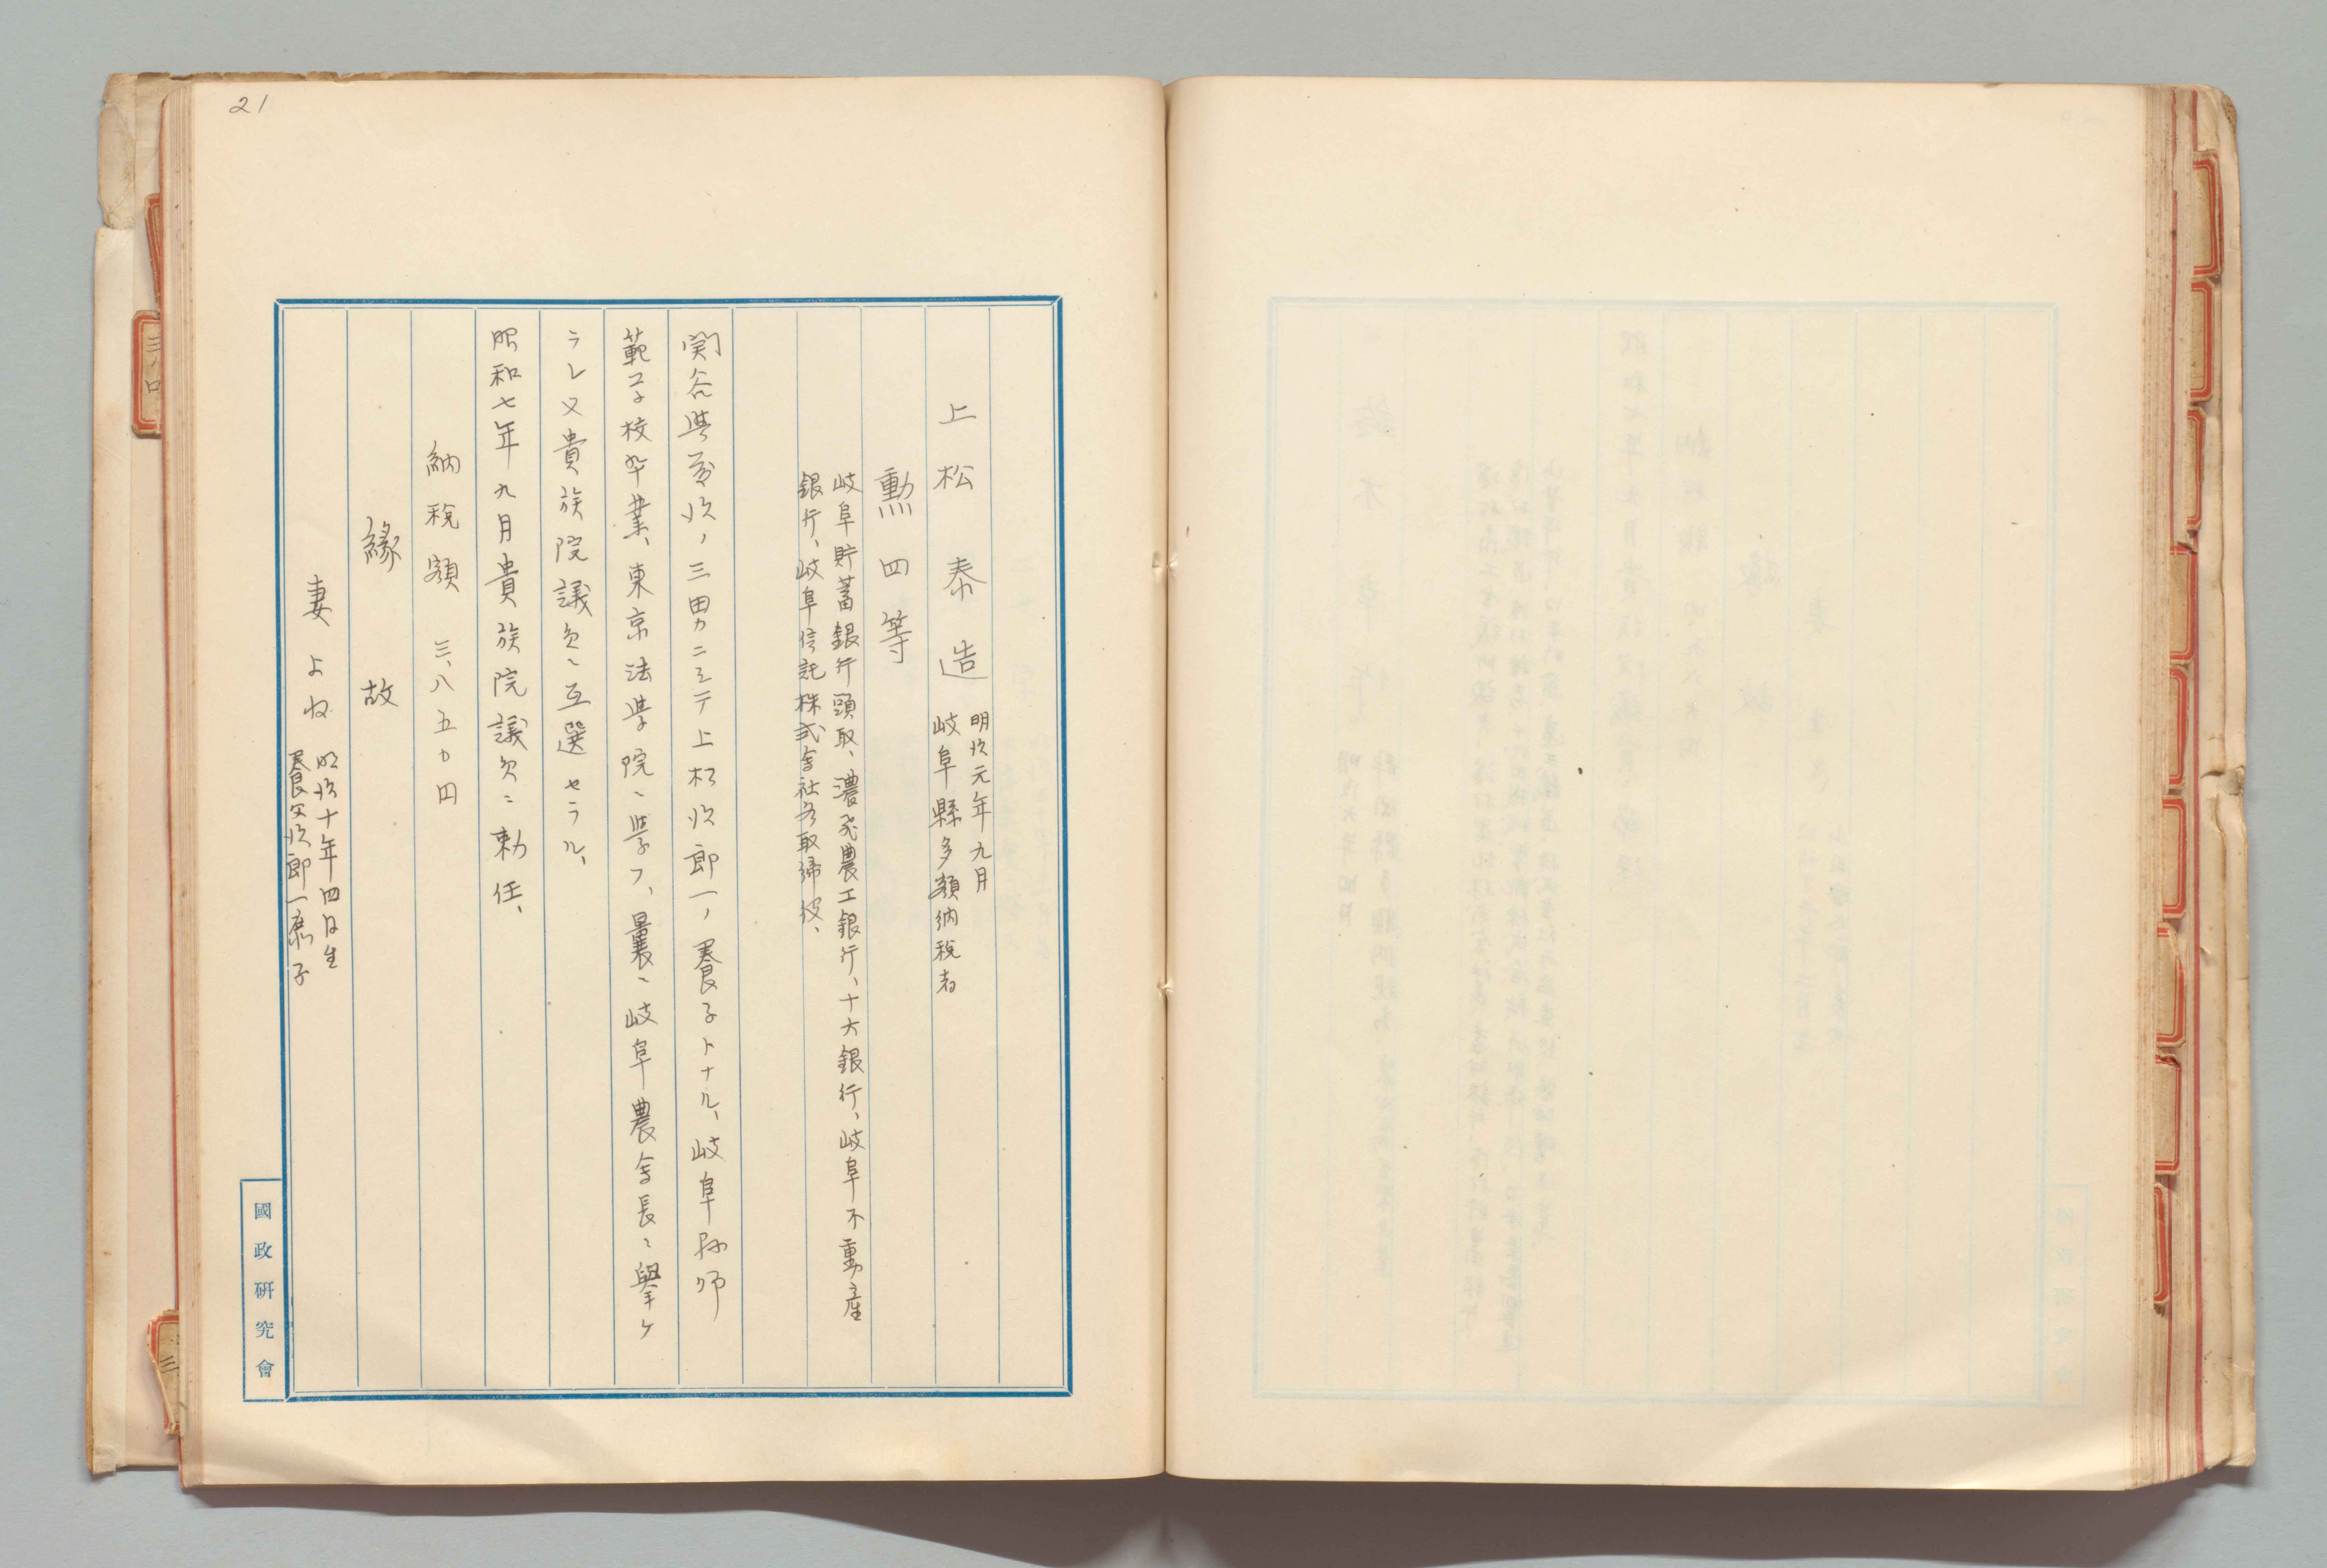 21
上松泰造
明治元年九月
岐阜縣多額納税者
勲四等
岐阜貯蓄銀行頭取、濃飛農工銀行、十六銀行、岐阜不動産
銀行、岐阜信託株式会社各取締役、
関谷學藏次ノ三男ニシテ上松次郎一ノ養子トナル、岐阜縣師
範学校卒業、東京法学院ニ学フ、曩ニ岐阜農会長ニ擧ケ
ラレ又貴族院議員ニ互選セラル、
昭和七年九月貴族院議員ニ勅任、
納税額 三、八五〇円
縁故
妻 よね
明治十年四月生
養父次郎一庶子
國政研究會